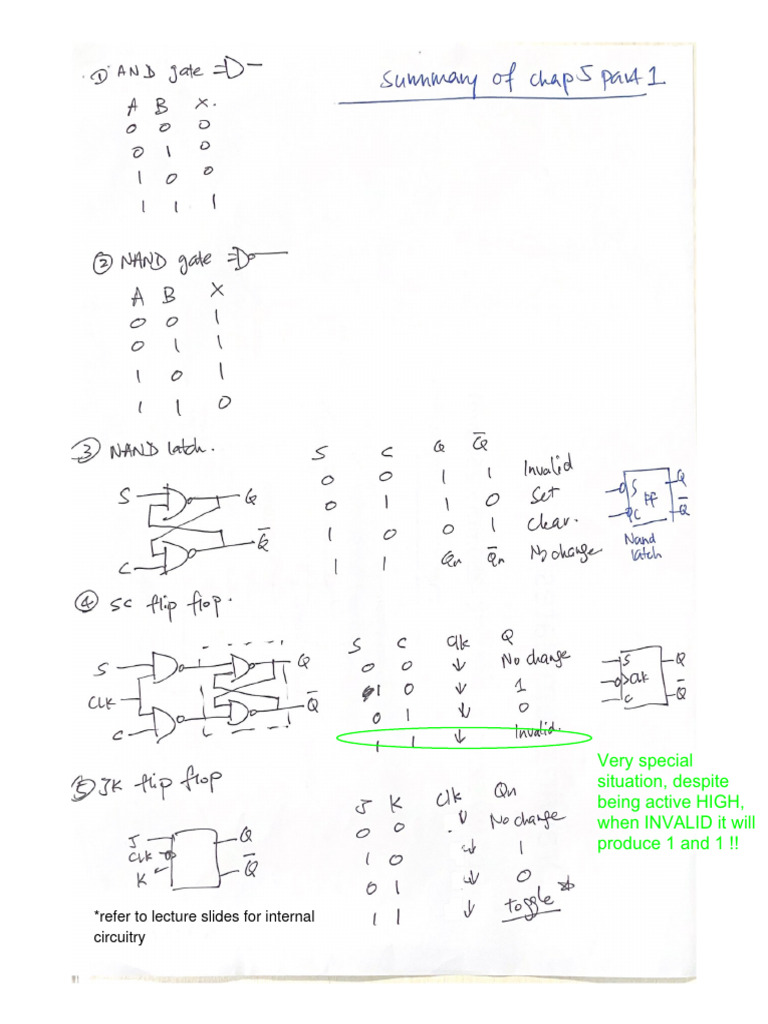 Summary of chap 5 part 1
① AND gate
A B X.
0 0 0
0 1 0
1 0 0
1 1 1
② NAND gate
A B X
0 0 1
0 1 1
1 0 1
1 1 0
③ NAND latch.
S C Q Q̅
0 0 1 1 Invalid
0 1 1 0 Set
1 0 0 1 Clear.
1 1 Qn Q̅n No change
S Q
C Q̅
S FF Q
C Q̅
Nand
latch
④ SC flip flop.
S C Clk Q
0 0 ↓ No change
1 0 ↓ 1
0 1 ↓ 0
1 1 ↓ Invalid.
S Q
CLK Q̅
C
S Q
CLK
C Q̅
Very special
situation, despite
being active HIGH,
when INVALID it will
produce 1 and 1 !!
⑤ JK flip flop
J K Clk Qn
0 0 ↓ No change
1 0 ↓ 1
0 1 ↓ 0
1 1 ↓ toggle *
J Q
CLK
K Q̅
*refer to lecture slides for internal
circuitry